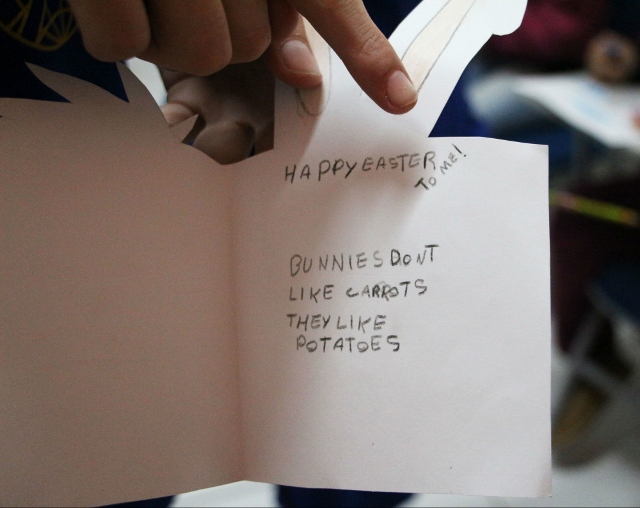 HAPPY EASTER
TO ME!
BUNNIES DONT
LIKE CARROTS
THEY LIKE
POTATOES